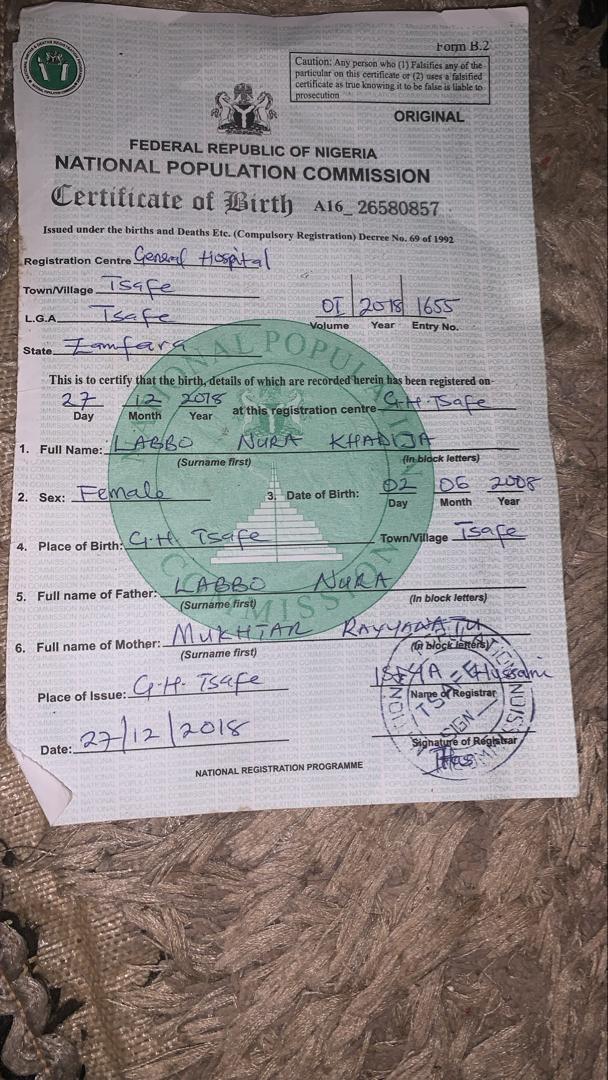 Form B.2
Caution: Any person who (1) Falsifies any of the
particular on this certificate or (2) uses a falsified
certificate as true knowing it to be false is liable to
prosecution
ORIGINAL
FEDERAL REPUBLIC OF NIGERIA
NATIONAL POPULATION COMMISSION
Certificate of Birth A16_ 26580857
Issued under the births and Deaths Etc. (Compulsory Registration) Decree No. 69 of 1992
Registration Centre General Hospital
Town/Village Tsafe
L.G.A Tsafe
01 2018 1655
Volume Year Entry No.
State Zamfara
This is to certify that the birth, details of which are recorded herein has been registered on
27 12 2018 at this registration centre G.H. Tsafe
Day Month Year
1. Full Name: LABBO NURA KHADIJA
(Surname first) (In block letters)
2. Sex: Female 3. Date of Birth: 02 06 2008
Day Month Year
4. Place of Birth: G.H. Tsafe Town/Village Tsafe
5. Full name of Father: LABBO NURA
(Surname first) (In block letters)
6. Full name of Mother: MUKHTAR RAYYANATU
(Surname first) (In block letters)
Place of Issue: G.H. Tsafe
Name of Registrar
Date: 27/12/2018
Signature of Registrar
NATIONAL REGISTRATION PROGRAMME